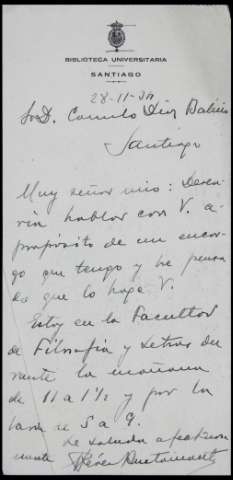 BIBLIOTECA UNIVERSITARIA
SANTIAGO
28-11-30
Sr. D. Camilo Díaz Baliño
Santiago
Muy señor mio: Desea-
ría hablar con V. a
propósito de un encar-
go que tengo y he pensa-
do que lo haga V.
Estoy en la Facultad
de Filosofía y Letras du
rante la mañana
de 11 a 1½ y por la
tarde de 5 a 9.
Le saluda afectuosa
mente Bustamante